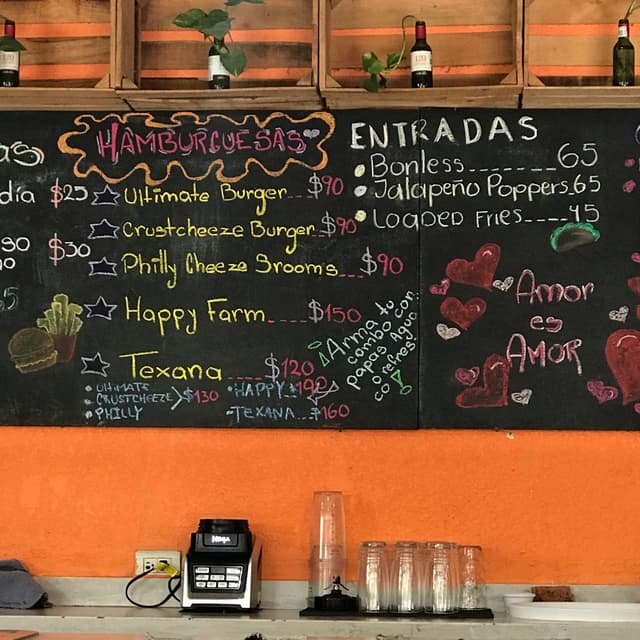 HAMBURGUESAS
Ultimate Burger $90
Crustcheeze Burger $90
Philly Cheeze Srooms $90
Happy Farm $150
Texana $120
• ULTIMATE
• CRUSTCHEEZE $130
• PHILLY
• HAPPY $190
• TEXANA $160
¡Arma tu
combo con
papas Agua
o refresco!
ENTRADAS
• Bonless 65
• Jalapeño Poppers 65
• Loaded Fries 45
Amor
es
AMOR
día $25
$30
NINJA